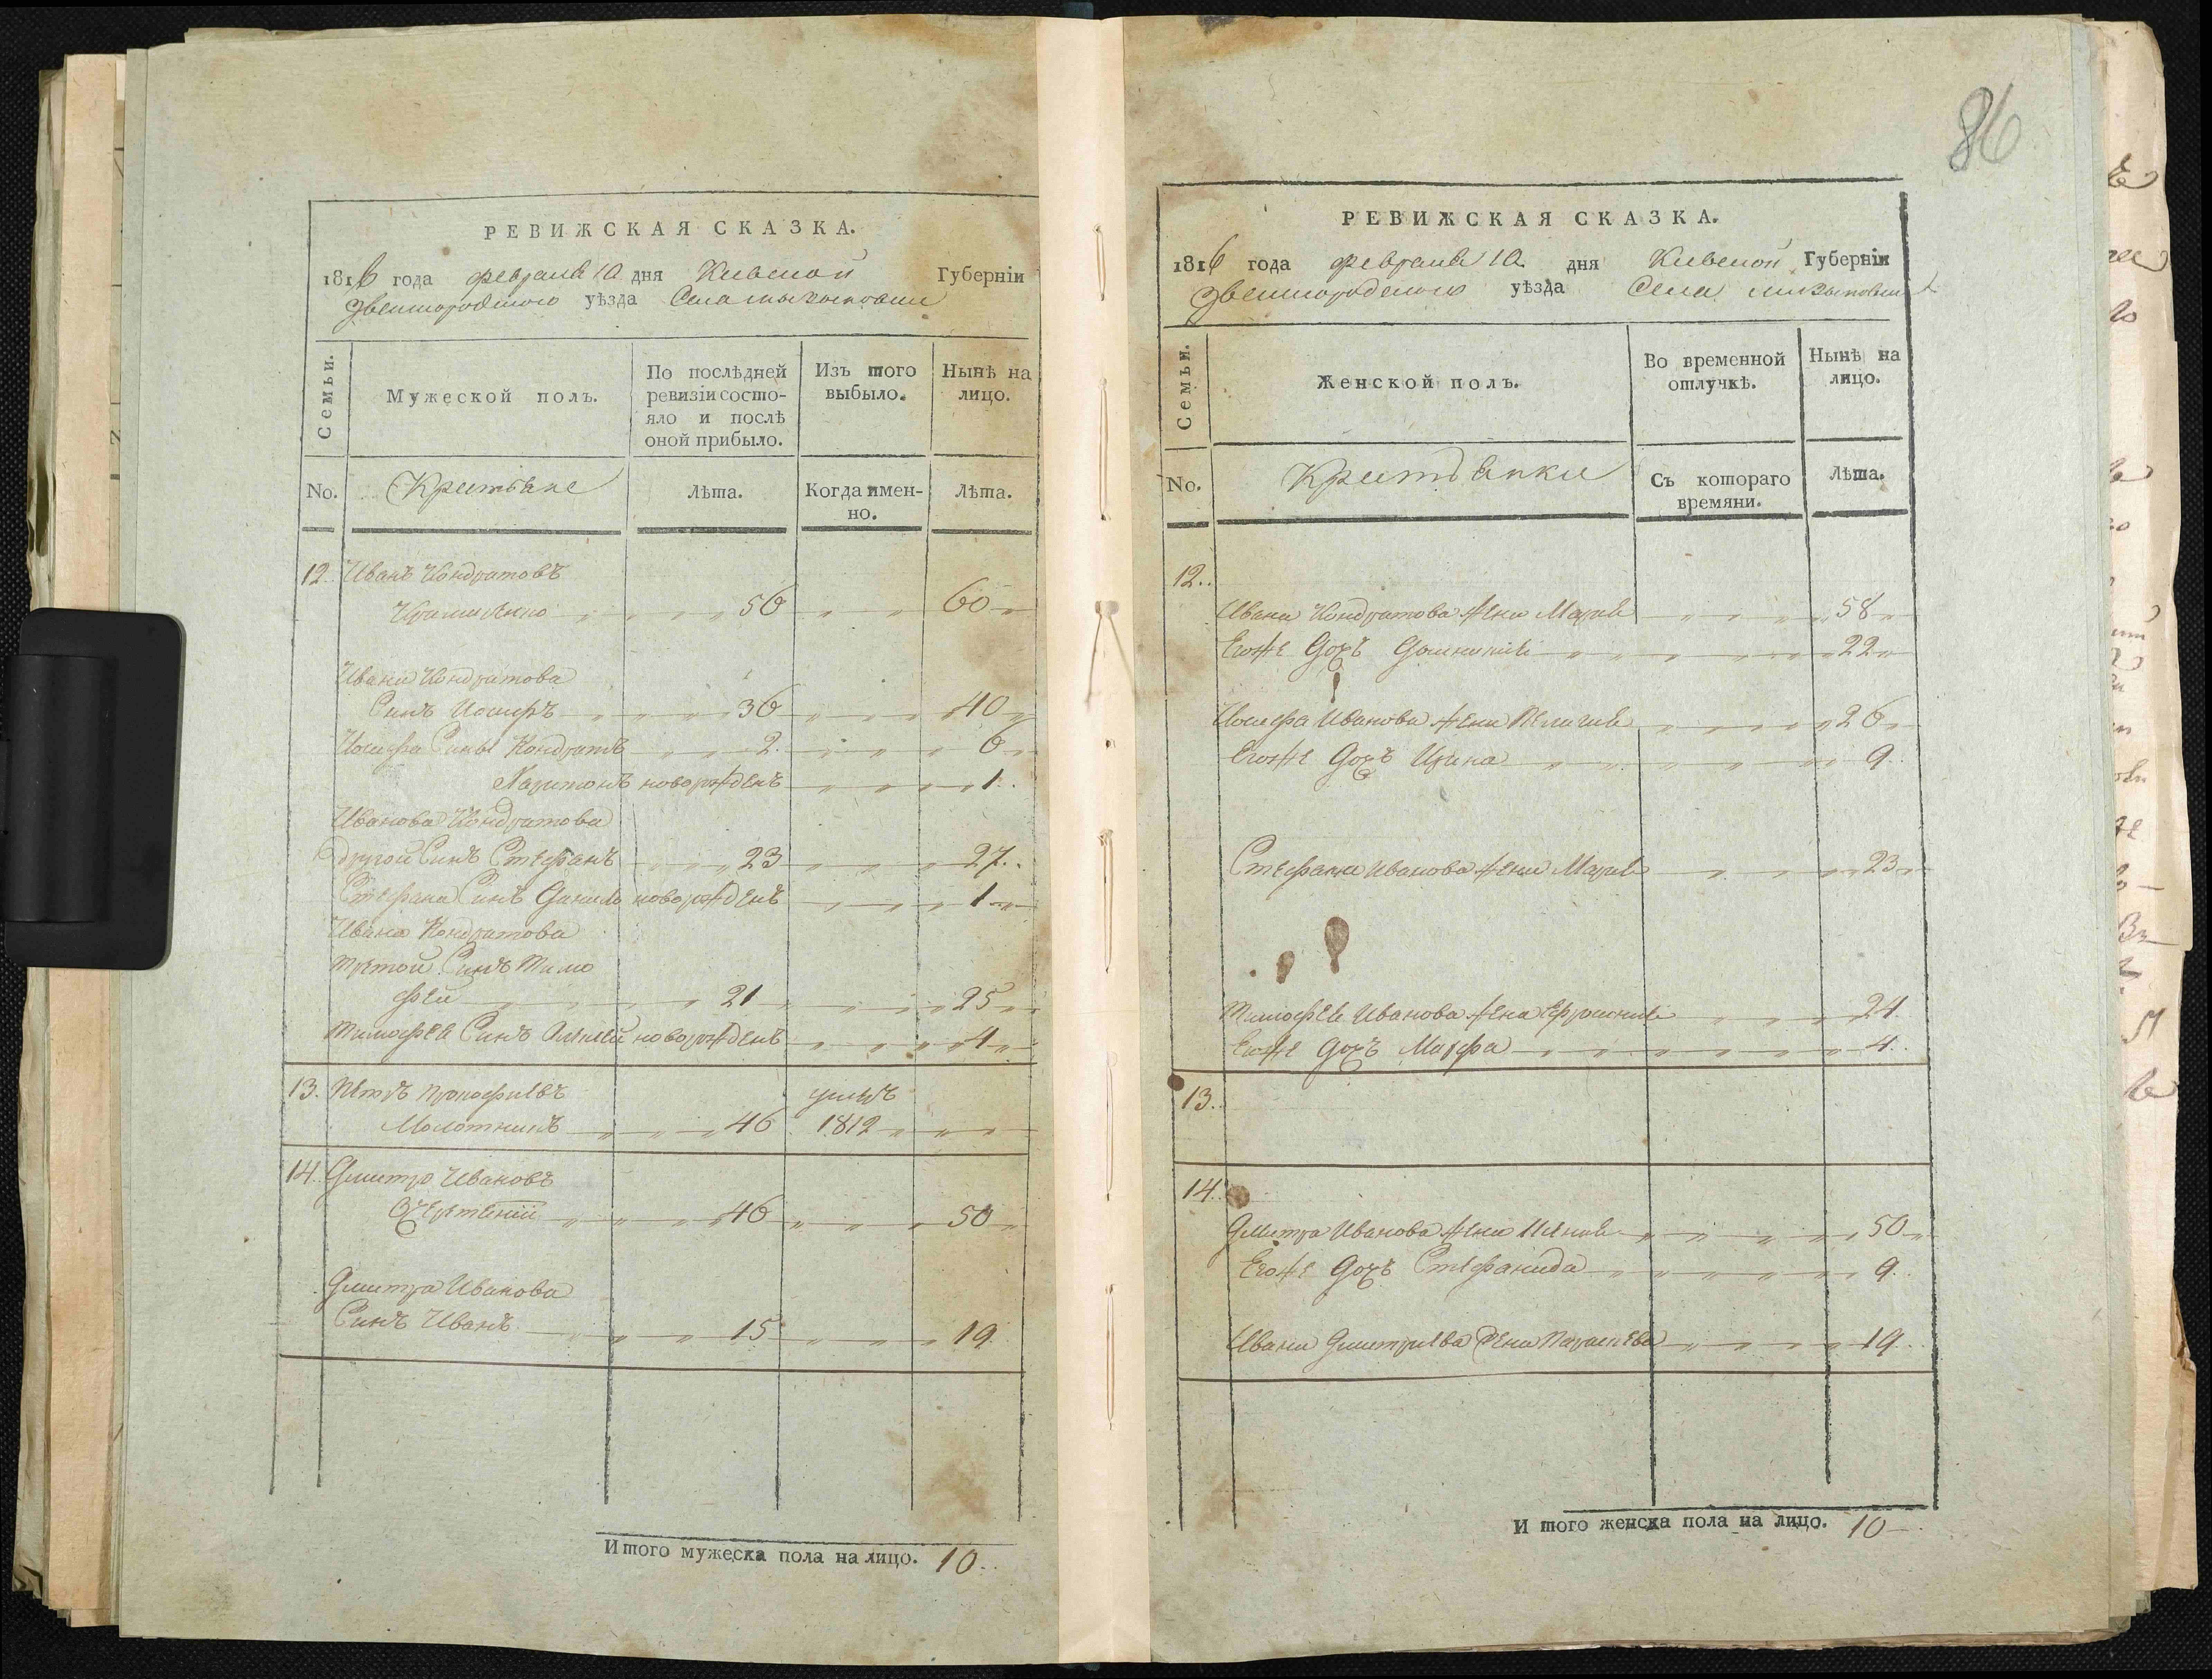 86
РЕВИЖСКАЯ СКАЗКА.
1816 года февраля 10 дня Киевской Губерніи
Звенигородского уѣзда Села
Семьи.
Мужеской полъ.
По послѣдней ревизіи состояло и послѣ оной прибыло.
Изъ того выбыло.
Нынѣ на лицо.
No.
Крестьяне
Лѣта.
Когда именно.
Лѣта.
12. Иванъ Кондратовъ
56 60
Ивана Кондратова
Синъ Иосифъ 36 40
Иосифа Сины Кондратъ 2. 6
Харитонъ новорожденъ 1.
Иванова Кондратова
другой Синъ Стефанъ 23 27.
Стефана Синъ Данило новорожденъ 1
Ивана Кондратова
третой Синъ Тимо
фей 21 25
Тимофея Синъ новорожденъ 4
13. Петръ Прокофиевъ умеръ
Молотникъ 46 1812
14. Дмитро Ивановъ
46 50
Дмитра Иванова
Синъ Иванъ 15 19.
Итого мужеска пола на лицо. 10.
РЕВИЖСКАЯ СКАЗКА.
1816 года февраля 10 дня Киевской Губерніи
Звенигородского уѣзда Села
Семьи.
Женской полъ.
Во временной отлучкѣ.
Нынѣ на лицо.
No.
Крестьянки
Съ котораго времяни.
Лѣта.
12.
Ивана Кондратова жена Марія 58
Егоже дочъ 22
Иосифа Иванова жена Пелагия 26
Егоже дочъ Ирина 9.
Стефана Иванова жена Марія 23
Тимофея Иванова жена Ефросинія 21.
Егоже дочъ Марфа 4.
13.
14.
Дмитра Иванова жена 50
Егоже дочъ Стефанида 9.
Ивана Дмитриева жена Параскева 19.
И того женска пола на лицо. 10